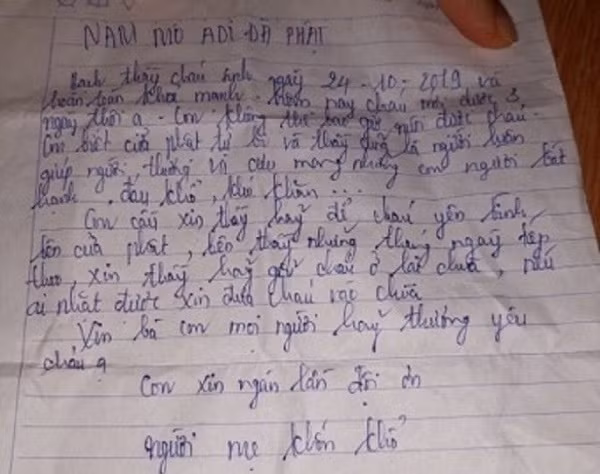 NAM MÔ ADI ĐÀ PHẬT
Bạch thầy cháu sinh ngày 24-10-2019 và
hoàn toàn khỏe mạnh. hôm nay cháu mới được 3
ngày thôi ạ. Con không thể bao giờ được cháu.
Con biết cửa phật từ bi và thầy là người luôn
giúp người, thường và cưu mang những con người bất
hạnh. đau khổ, khó khăn...
Con cầu xin thầy hãy để cháu yên bình
bên cửa phật, bên thầy những tháng ngày tiếp
theo, xin thầy hãy giữ cháu ở lại chùa, nếu
ai nhặt được xin đưa cháu vào chùa
Xin bà con mọi người hãy thương yêu
cháu ạ
Con xin ngàn lần đội ơn
người mẹ khốn khổ